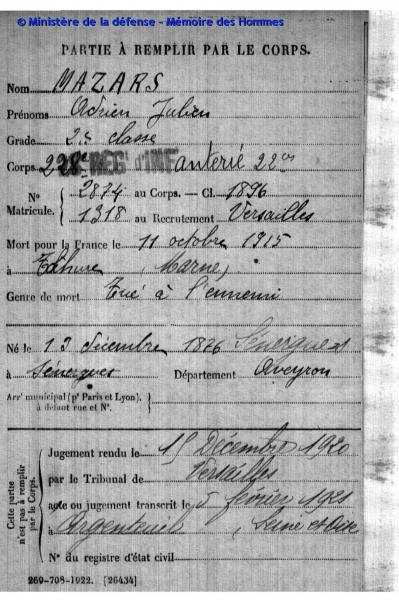 © Ministère de la défense - Mémoire des Hommes
PARTIE À REMPLIR PAR LE CORPS.
Nom MAZARS
Prénoms Adrien Julien
Grade 2e classe
Corps 228e REG' d'INFanterie 22e
N° Matricule. { 2874 au Corps. — Cl. 1896
1318 au Recrutement Versailles
Mort pour la France le 11 octobre 1915
à Tahure (Marne)
Genre de mort Tué à l'ennemi
Né le 13 décembre 1876 Sénergues
à Sénergues Département Aveyron
Arr' municipal (p' Paris et Lyon),
à défaut rue et N°.
Cette partie n'est pas à remplir par le Corps.
Jugement rendu le 15 Décembre 1920
par le Tribunal de Versailles
acte ou jugement transcrit le 5 février 1921
à Argenteuil, Seine et Oise
N° du registre d'état civil
269-708-1922. [26434]